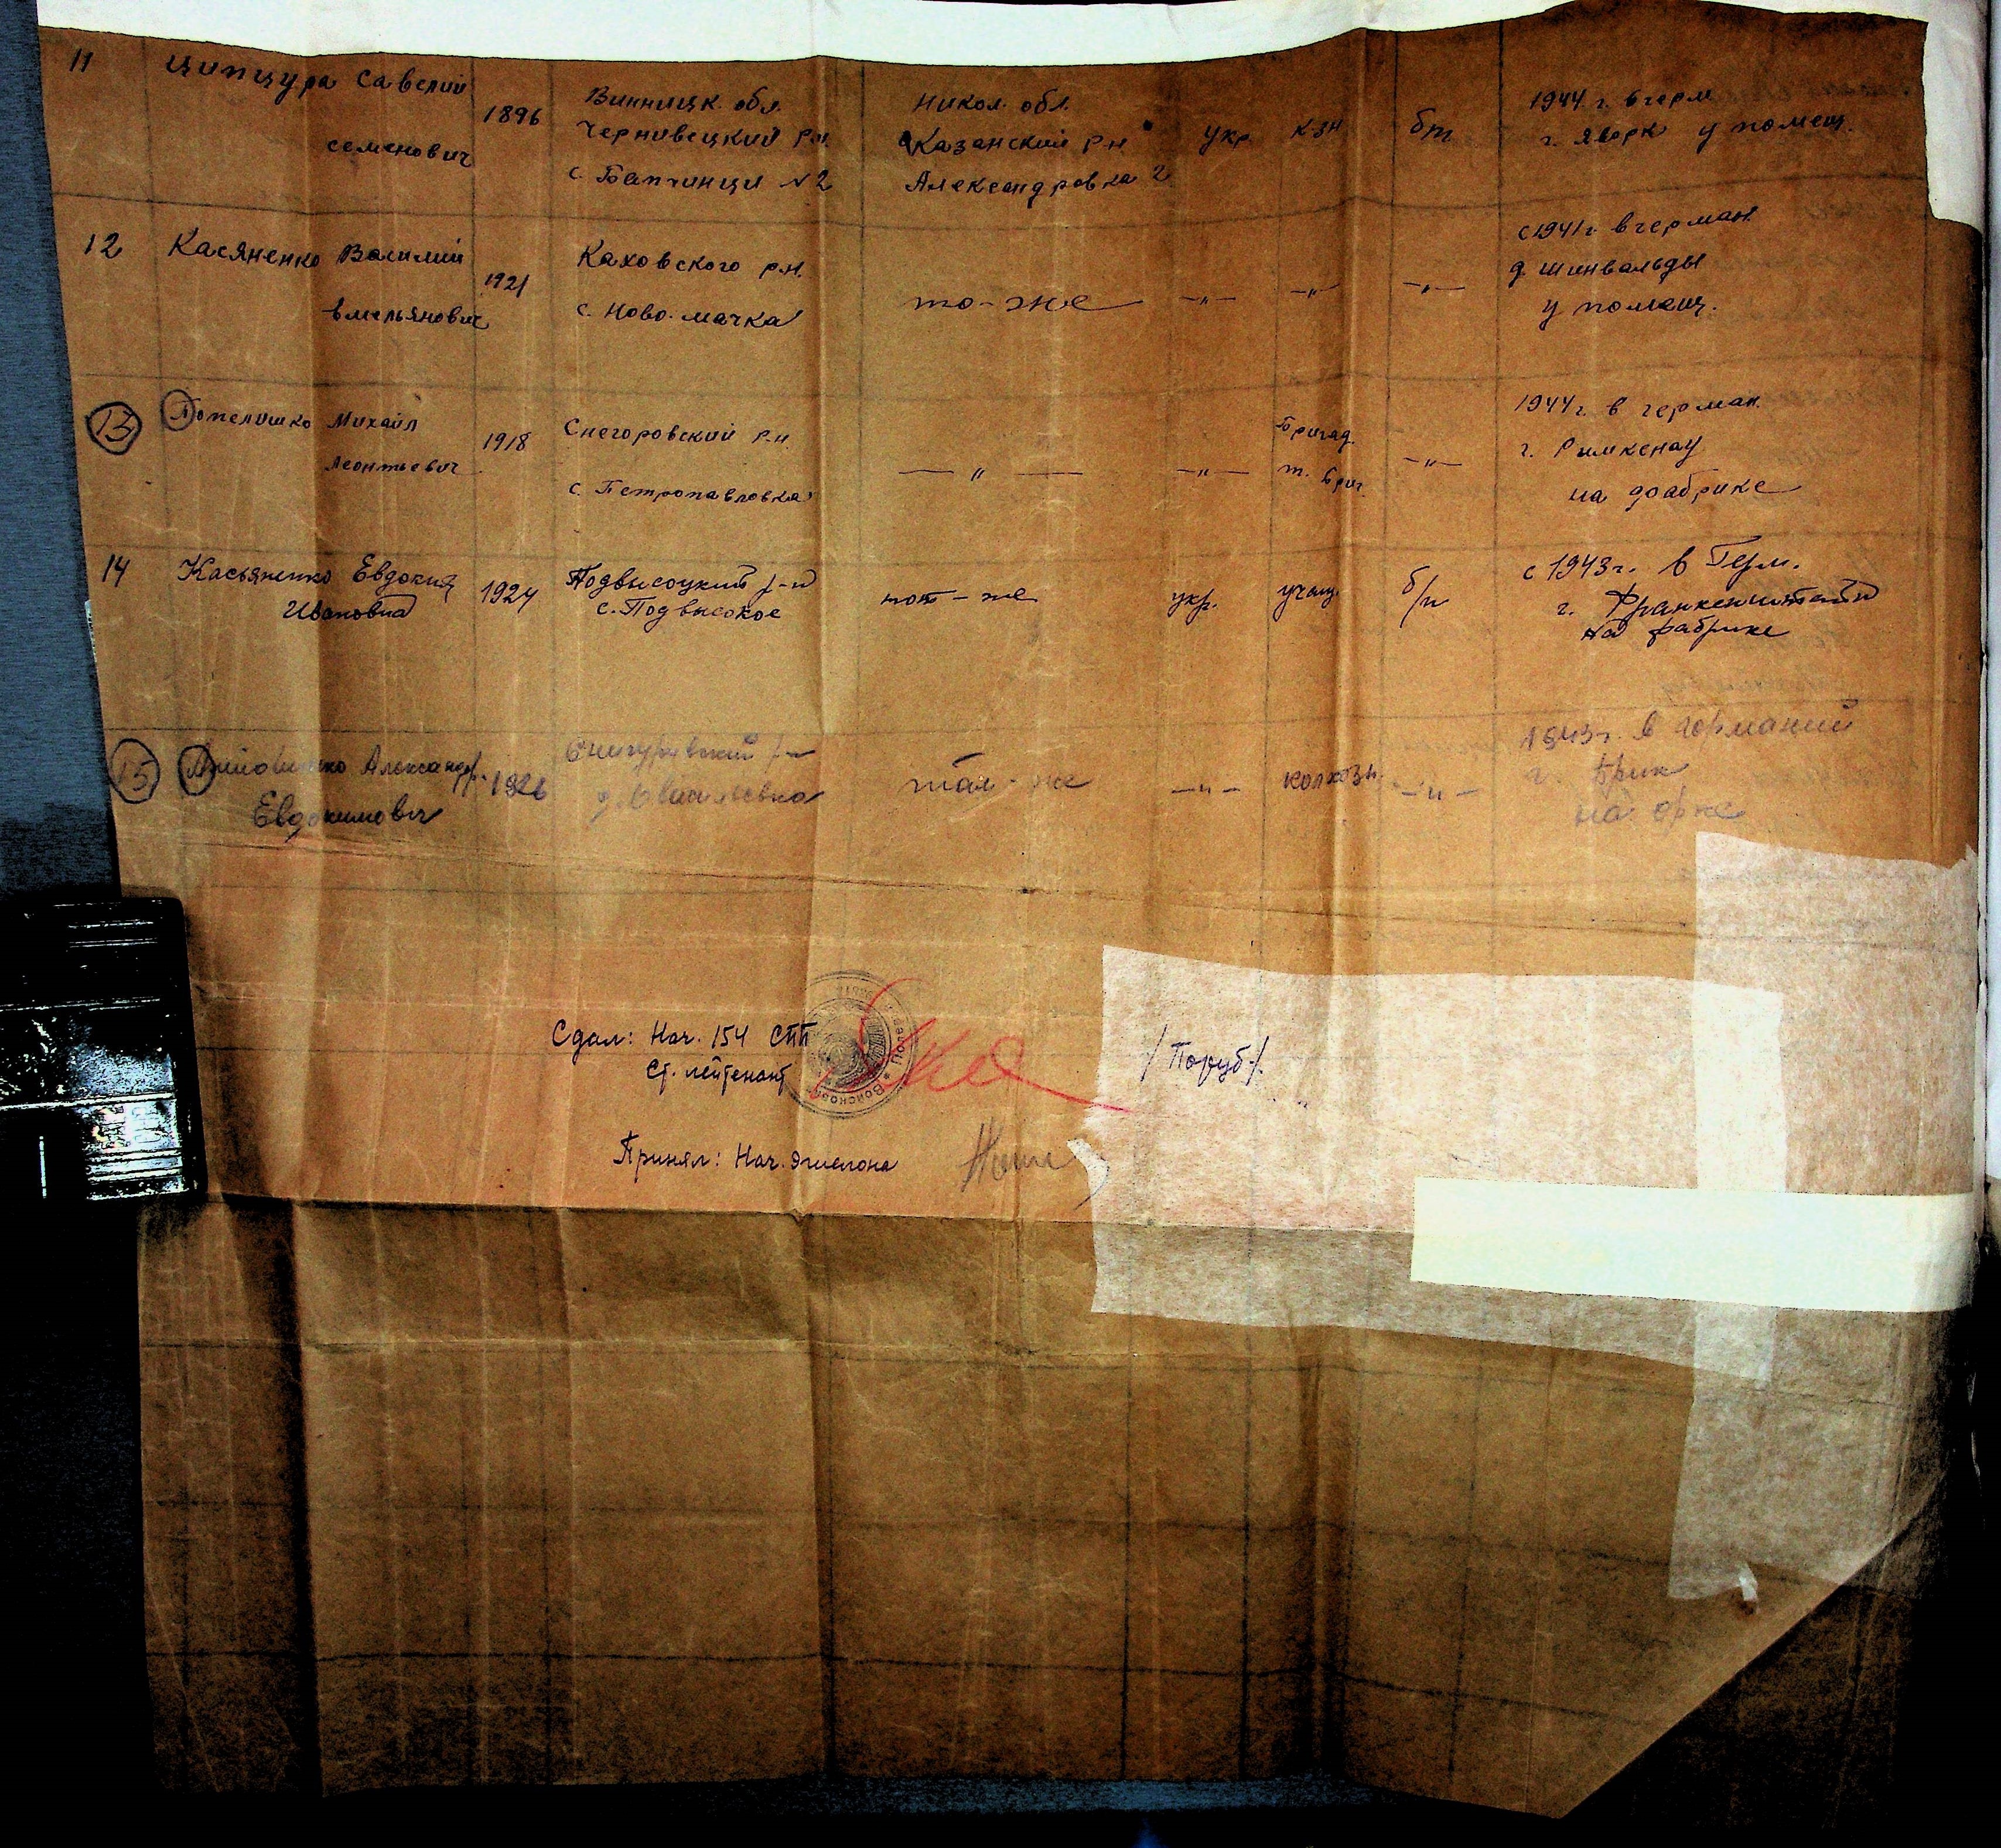 11 Ципцура Савелий
семенович
1896
Винницк. обл.
Чернивецкий р.н.
с. Бапчинци №2
Никол. обл.
Казанский р.н.
Александровка 2
укр. к-зн б/п
1944 г. в герм
г. Явор у помещ.
12 Касяненко Василий
Емельянович
1921
Каховского р.н.
с. Ново-мачка
то-же —"— —"— —"—
с 1941 г. в герман.
д. Шинвальды
у помещ.
13 Попелишко Михаил
Леонтьевич
1918
Снегоровский р.н.
с. Петропавловка
—"— —"—
Бригад.
т. бриг.
—"—
1944 г. в герман.
г. Римкенау
на фабрике
14 Касьяненко Евдокия
Ивановна
1924
Подвысоцкий р-н
с. Подвысокое
тот-же укр. учащ. б/п
с 1943 г. в Герм.
г. Франкенштейн
на фабрике
15 Александр.
Евдокимович
1926
р-н
там-же —"— колхозн. —"—
1943 г. в германии
г. Бриг
на
Сдал: Нач. 154 СПП
Ст. лейтенант
/Поруб/
Принял: Нач. эшелона